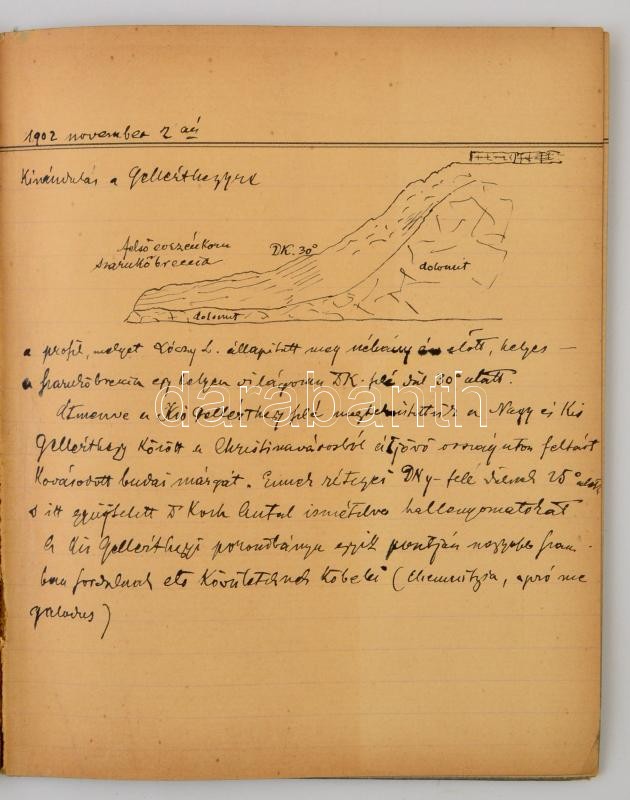 1902 november 2 án
Kirándulás a Gellérthegyre
felső eoszénkoru
szarukőbreccia
DK. 30°
dolomit
dolomit
a profil, melyet Lóczy L. állapított meg néhány év előtt, helyes –
a szarukőbreccia egy helyen világosan DK. felé dül 30° alatt.
Átmenve a Kis Gellérthegy felé megtekintettük a Nagy és Kis
Gellérthegy között a Christinavárosból átjövő országuton feltárt
Kovásodott budai márgát. Ennek rétegei DKy-felé dülnek 25° alatt
s itt gyüjtött Dr Koch Antal ismételve hallenyomatokat
A Kis Gellérthegyi porondbánya egyik pontján nagyobb szám-
ban fordulnak elő Kövületeknek kőbelei (Chemnitzia, apró me
galodus)
darabanth